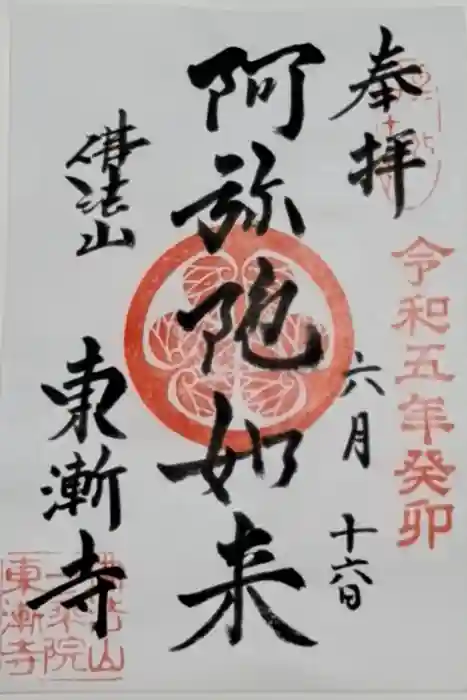 奉拝
令和五年癸卯
六月
十六日
阿弥陀如来
佛法山
東漸寺
佛法山
一乗院
東漸寺